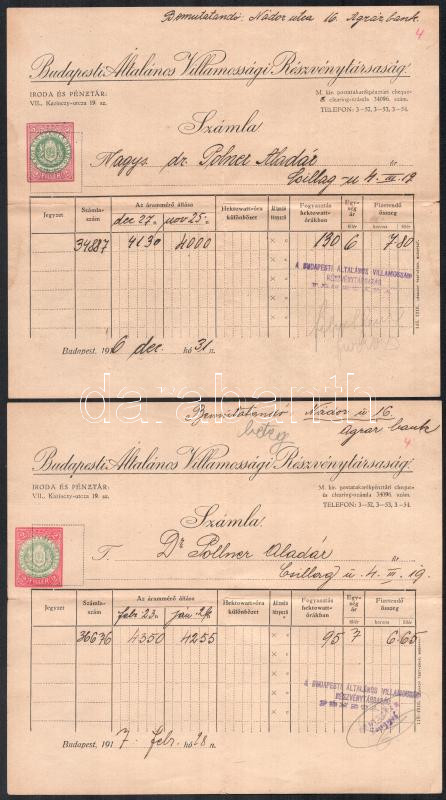 Bemutatandó: Nádor utca 16. Agrár bank.
4
Budapesti Általános Villamossági Részvénytársaság.
IRODA ÉS PÉNZTÁR:
VII., Kazinczy-utcza 19. sz.
M. kir. postatakarékpénztári cheque-
és clearing-számla 34096. szám.
TELEFON: 3-52, 3-53, 3-54.
Számla.
Nagys. dr. Polner Aladár úr
Csillag-u 4. III. 19
Jegyzet
Számla-szám
Az árammérő állása
Hektowatt-óra különbözet
Állandó tényező
Fogyasztás hektowatt-órákban
Egység ár
Fizetendő összeg
fillér
korona
fillér
dec 27. nov 25.
34887 4130 4000 130 6 7.80
A BUDAPESTI ÁLTALÁNOS VILLAMOSSÁGI
RÉSZVÉNYTÁRSASÁG
Budapest, 1916 dec. hó 31 n.
darabanth
Bemutatandó Nádor u 16
Agrár bank
beteg
4
Budapesti Általános Villamossági Részvénytársaság.
IRODA ÉS PÉNZTÁR:
VII., Kazinczy-utcza 19. sz.
M. kir. postatakarékpénztári cheque-
és clearing-számla 34096. szám.
TELEFON: 3-52, 3-53, 3-54.
Számla.
T. Dr Pollner Aladár úr
Csillag u. 4. III. 19.
Jegyzet
Számla-szám
Az árammérő állása
Hektowatt-óra különbözet
Állandó tényező
Fogyasztás hektowatt-órákban
Egység ár
Fizetendő összeg
fillér
korona
fillér
febr. 23. jan 26.
36676 4350 4255 95 7 6.65
A BUDAPESTI ÁLTALÁNOS VILLAMOSSÁGI
RÉSZVÉNYTÁRSASÁG
Budapest, 1917. febr. hó 28 n.